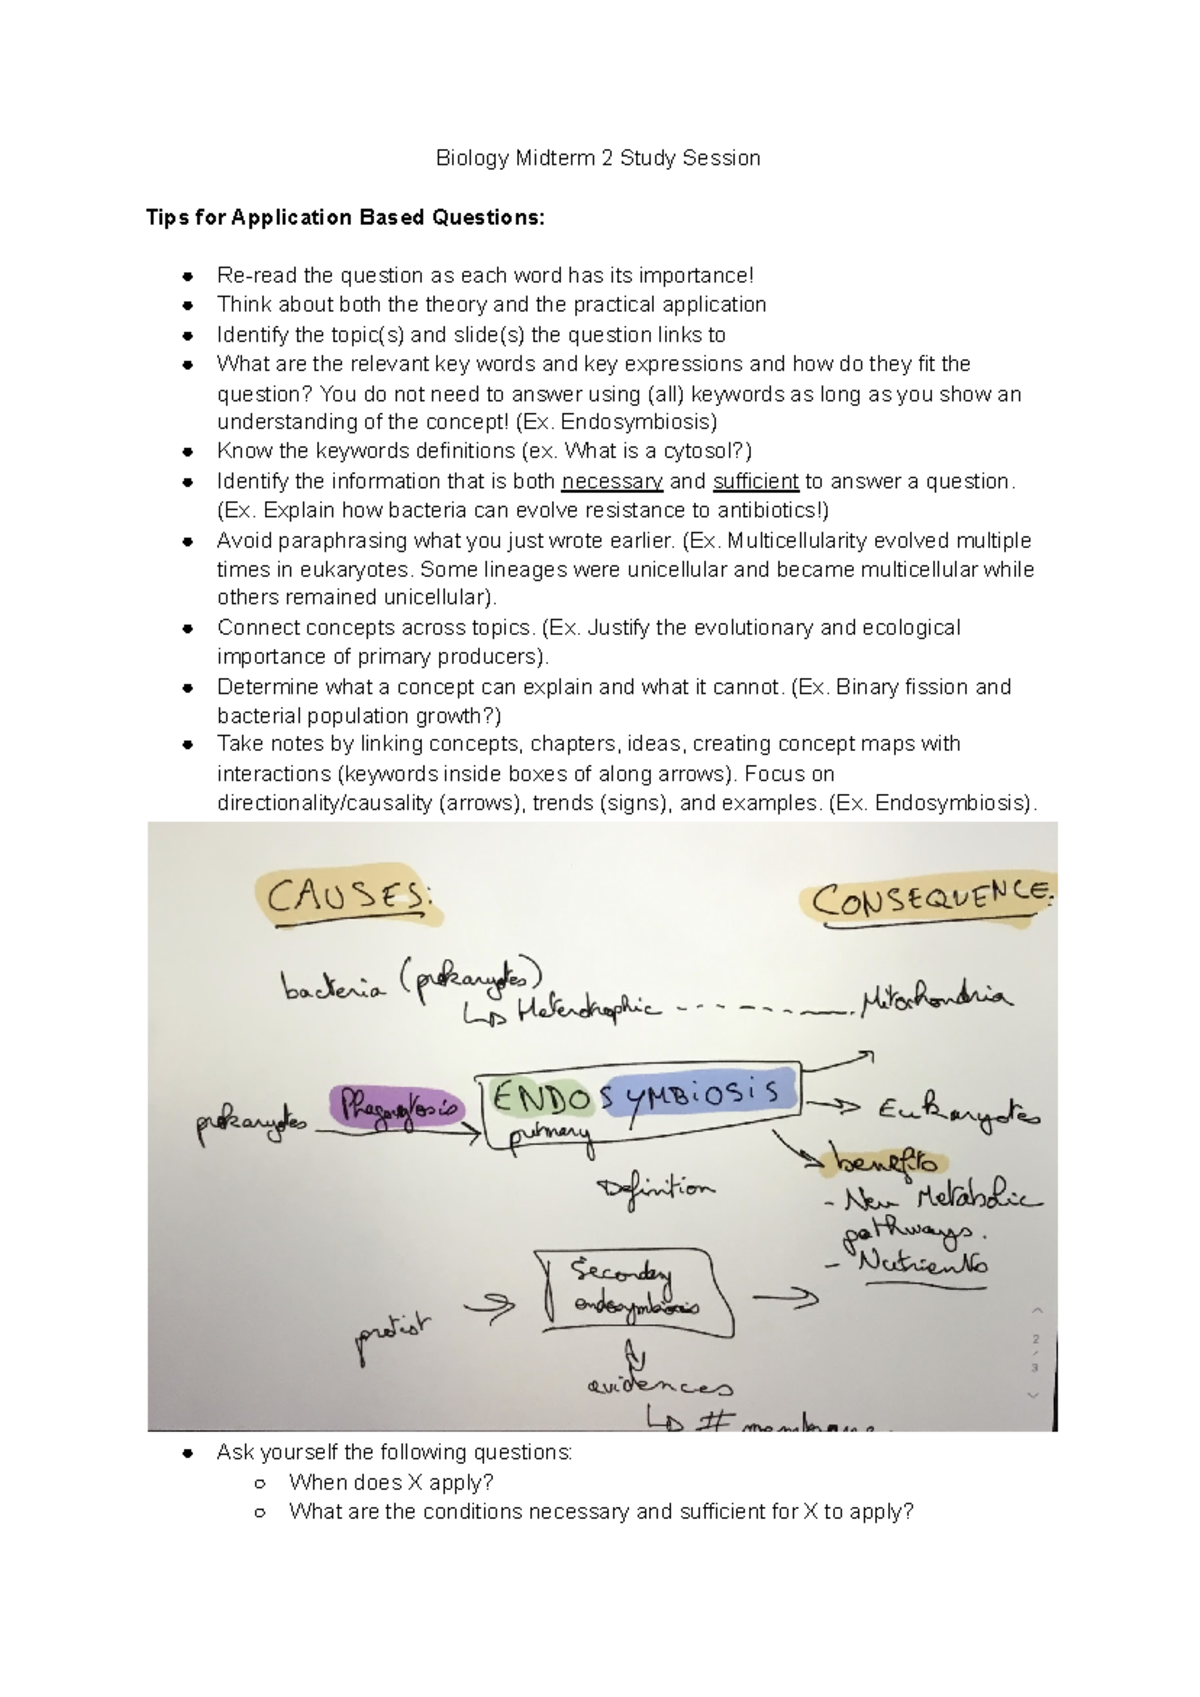 Biology Midterm 2 Study Session
Tips for Application Based Questions:
● Re-read the question as each word has its importance!
● Think about both the theory and the practical application
● Identify the topic(s) and slide(s) the question links to
● What are the relevant key words and key expressions and how do they fit the
question? You do not need to answer using (all) keywords as long as you show an
understanding of the concept! (Ex. Endosymbiosis)
● Know the keywords definitions (ex. What is a cytosol?)
● Identify the information that is both necessary and sufficient to answer a question.
(Ex. Explain how bacteria can evolve resistance to antibiotics!)
● Avoid paraphrasing what you just wrote earlier. (Ex. Multicellularity evolved multiple
times in eukaryotes. Some lineages were unicellular and became multicellular while
others remained unicellular).
● Connect concepts across topics. (Ex. Justify the evolutionary and ecological
importance of primary producers).
● Determine what a concept can explain and what it cannot. (Ex. Binary fission and
bacterial population growth?)
● Take notes by linking concepts, chapters, ideas, creating concept maps with
interactions (keywords inside boxes of along arrows). Focus on
directionality/causality (arrows), trends (signs), and examples. (Ex. Endosymbiosis).
CAUSES:
CONSEQUENCE:
bacteria (prokaryotes)
Heterotrophic
Mitochondria
prokaryotes
Phagocytosis
ENDOSYMBIOSIS
primary
Eukaryotes
Definition
benefits
- New Metabolic
pathways.
- Nutrients
protist
Secondary
endosymbiosis
evidences
# membrane
2
/
3
● Ask yourself the following questions:
○ When does X apply?
○ What are the conditions necessary and sufficient for X to apply?